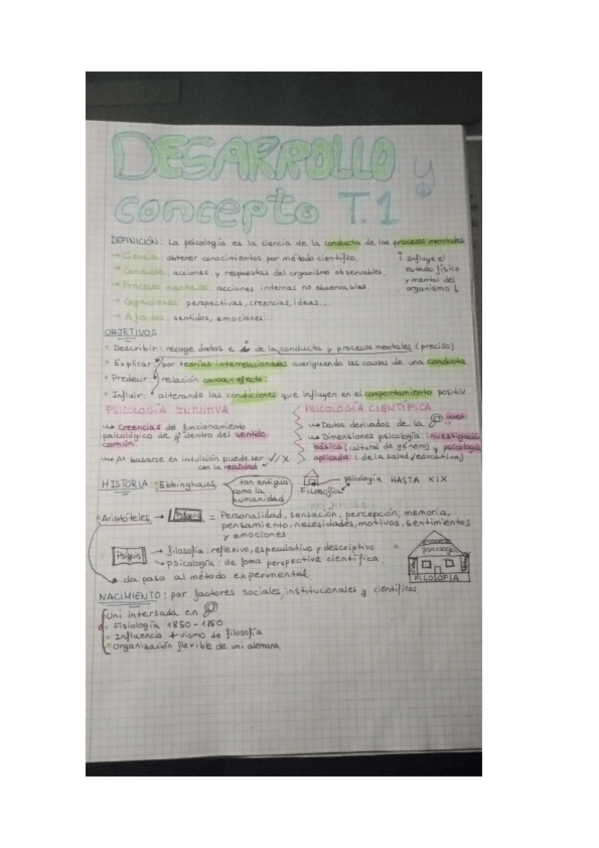 DESARROLLO y
concepto T.1
DEFINICIÓN: La psicología es la ciencia de la conducta de los procesos mentales
→ Ciencia: obtener conocimientos por método científico.
→ Conducta: acciones y respuestas del organismo observables.
→ Procesos mentales: acciones internas no observables
→ Cogniciones: perspectivas, creencias, ideas...
→ Afectos: sentidos, emociones...
¡ Influye el
estado físico
y mental del
organismo !
OBJETIVOS
• Describir: recoge datos e de la conducta y procesos mentales (preciso)
• Explicar: por teorías interrelacionadas averiguando las causas de una conducta
• Predecir: relación causa-efecto:
• Influir: alterando las condiciones que influyen en el comportamiento positiv
PSICOLOGÍA INTUITIVA
↝ Creencias del funcionamiento
psicológico de dentro del sentido
común.
↝ Al basarse en intuición puede ser ✓/X
con la realidad
PSICOLOGÍA CIENTÍFICA
↝ Datos derivados de la
↝ Dimensiones psicología: investigación
básica (cultural de género) y psicología
aplicada (de la salud/educativa)
HISTORIA: Ebbinghaus
tan antigua
como la
humanidad
Filosofía
psicología HASTA XIX
Aristóteles → = Personalidad, sensación, percepción, memoria,
pensamiento, necesidades, motivos, sentimientos
y emociones
→ filosofía: reflexivo, especulativo y descriptivo
→ psicología: de forma perspectiva científica
→ da paso al método experimental
PSICOLOGÍA
FILOSOFÍA
NACIMIENTO: por factores sociales, institucionales y científicos
Uni intersada en
• Fisiología 1850-1860
• Influencia +vismo de filosofía
• Organización flexible de uni alemana